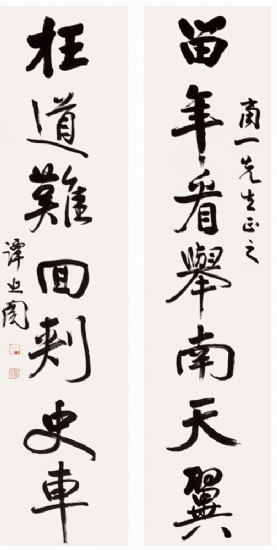 當年看舉南天翼
南一先生正之
枉道難回刺史車
譚延闓